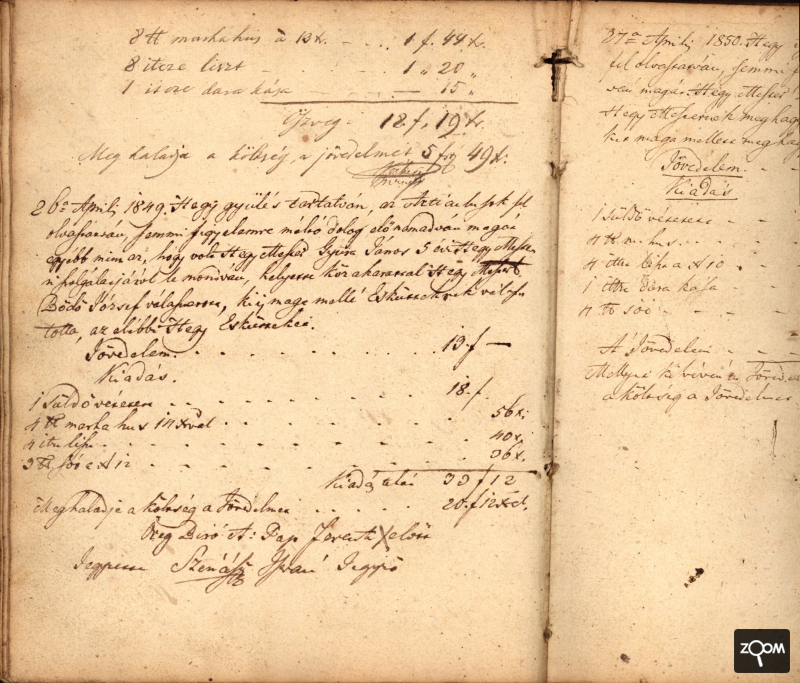 8 ℔ marhahus à 13 x. — . . . 1 f. 44 x.
8 itcze liszt — . . . 1 „ 20 „
1 itcze dara kása — 15 „
Öszveg — 18 f. 19 x.
Meg haladja a költség a jövedelmet 5 f 49 x.
26a April, 1849. Hegy gyülés tartatván, az Articulusok fel
olvastatván, semmi figyelemre méltó dolog elő nem adván magát
egyébb mint az, hogy volt Hegy Mester Gyura János 5 évi Hegy Meste-
ri szolgálatjáról le mondván, helyette köz akarattal Hegy Mester
Bódó József választatott, ki is maga mellé Eskütteknek válasz
totta, az elébbi Hegy Esküttekei.
Jövedelem . . . . . 13. f —
Kiadás.
1 Süldő vétetett . . . . . 18. f.
4 ℔ marha hus 14 xrval . . . . . 56 x.
4 itcze . . . . . 40 x.
3 ℔ Sóó a x 12 . . . . . 36 x.
Kiadás 33 f 12
Meghaladja a költség a Jövedelmet . . . . . 20. f 12 xrt.
Öreg Biró A: Pap Ferentz előtt
Jegyzette Szénásy István Jegyző
27a April, 1850. Hegy
fel olvastatván, semmi f
ván magát. Hegy Mester
Hegy Mesternek meghagy
kit maga mellett meghagy
Jövedelem. — -
Kiadás
1 Süldő vétetett — -
4 ℔ m. hus . . . -
4 a x 10 . -
1 dara kása — -
4 ℔ sóó — -
A' Jövedelem — -
Mellyet ki vévén a Jövede
a költség a Jövedelmet
ZOOM